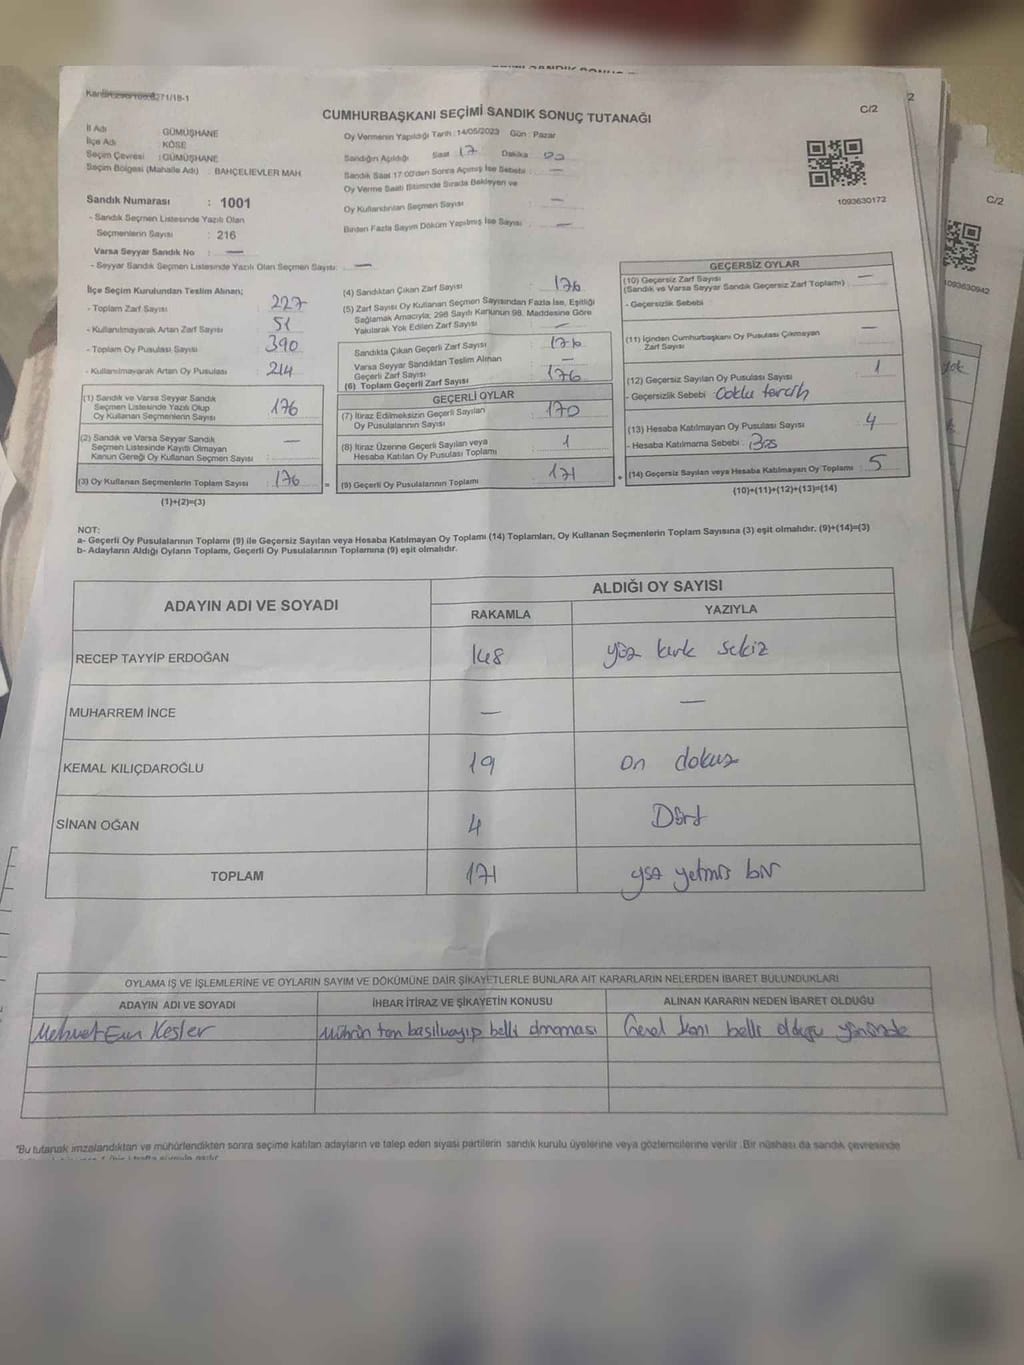 271/18-1
C/2
CUMHURBAŞKANI SEÇİMİ SANDIK SONUÇ TUTANAĞI
İl Adı : GÜMÜŞHANE
İlçe Adı : KÖSE
Seçim Çevresi : GÜMÜŞHANE
Seçim Bölgesi (Mahalle Adı) : BAHÇELİEVLER MAH.
Oy Vermenin Yapıldığı Tarih : 14/05/2023 Gün : Pazar
Sandığın Açıldığı Saat 17 Dakika 00
Sandık Saat 17:00'den Sonra Açımış İse Sebebi : —
Oy Verme Saati Bitiminde Sırada Bekleyen ve
Oy Kullandırılan Seçmen Sayısı —
Birden Fazla Sayım Döküm Yapılmış İse Sayısı : —
1093630172
Sandık Numarası : 1001
- Sandık Seçmen Listesinde Yazılı Olan
Seçmenlerin Sayısı : 216
Varsa Seyyar Sandık No : —
- Seyyar Sandık Seçmen Listesinde Yazılı Olan Seçmen Sayısı: —
İlçe Seçim Kurulundan Teslim Alınan;
- Toplam Zarf Sayısı : 227
- Kullanılmayarak Artan Zarf Sayısı : 51
- Toplam Oy Pusulası Sayısı : 390
- Kullanılmayarak Artan Oy Pusulası : 214
(1) Sandık ve Varsa Seyyar Sandık
Seçmen Listesinde Yazılı Olup
Oy Kullanan Seçmenlerin Sayısı : 176
(2) Sandık ve Varsa Seyyar Sandık
Seçmen Listesinde Kayıtlı Olmayan
Kanun Gereği Oy Kullanan Seçmen Sayısı : —
(3) Oy Kullanan Seçmenlerin Toplam Sayısı : 176
(1)+(2)=(3)
(4) Sandıktan Çıkan Zarf Sayısı : 176
(5) Zarf Sayısı Oy Kullanan Seçmen Sayısından Fazla İse, Eşitliği
Sağlamak Amacıyla; 298 Sayılı Kanunun 98. Maddesine Göre
Yakılarak Yok Edilen Zarf Sayısı : —
Sandıkta Çıkan Geçerli Zarf Sayısı : 176
Varsa Seyyar Sandıktan Teslim Alınan
Geçerli Zarf Sayısı : —
(6) Toplam Geçerli Zarf Sayısı 176
GEÇERLİ OYLAR
(7) İtiraz Edilmeksizin Geçerli Sayılan
Oy Pusulalarının Sayısı : 170
(8) İtiraz Üzerine Geçerli Sayılan veya
Hesaba Katılan Oy Pusulası Toplamı : 1
= (9) Geçerli Oy Pusulalarının Toplamı : 171
GEÇERSİZ OYLAR
(10) Geçersiz Zarf Sayısı
(Sandık ve Varsa Seyyar Sandık Geçersiz Zarf Toplamı) : —
- Geçersizlik Sebebi
(11) İçinden Cumhurbaşkanı Oy Pusulası Çıkmayan
Zarf Sayısı : —
(12) Geçersiz Sayılan Oy Pusulası Sayısı : 1
- Geçersizlik Sebebi : Çoklu tercih
(13) Hesaba Katılmayan Oy Pusulası Sayısı : 4
- Hesaba Katılmama Sebebi : Boş
+ (14) Geçersiz Sayılan veya Hesaba Katılmayan Oy Toplamı : 5
(10)+(11)+(12)+(13)=(14)
NOT:
a- Geçerli Oy Pusulalarının Toplamı (9) ile Geçersiz Sayılan veya Hesaba Katılmayan Oy Toplamı (14) Toplamları, Oy Kullanan Seçmenlerin Toplam Sayısına (3) eşit olmalıdır. (9)+(14)=(3)
b- Adayların Aldığı Oyların Toplamı, Geçerli Oy Pusulalarının Toplamına (9) eşit olmalıdır.
ADAYIN ADI VE SOYADI ALDIĞI OY SAYISI
RAKAMLA YAZIYLA
RECEP TAYYİP ERDOĞAN 148 yüz kırk sekiz
MUHARREM İNCE — —
KEMAL KILIÇDAROĞLU 19 on dokuz
SİNAN OĞAN 4 Dört
TOPLAM 171 yüz yetmiş bir
OYLAMA İŞ VE İŞLEMLERİNE VE OYLARIN SAYIM VE DÖKÜMÜNE DAİR ŞİKAYETLERLE BUNLARA AİT KARARLARIN NELERDEN İBARET BULUNDUKLARI
ADAYIN ADI VE SOYADI İHBAR İTİRAZ VE ŞİKAYETİN KONUSU ALINAN KARARIN NEDEN İBARET OLDUĞU
Mehmet Emin Kesler Mührün tam basılmayıp belli olmaması Genel kanı belli olduğu yönünde
*Bu tutanak imzalandıktan ve mühürlendikten sonra seçime katılan adayların ve talep eden siyasi partilerin sandık kurulu üyelerine veya gözlemcilerine verilir. Bir nüshası da sandık çevresinde
C/2
1093630942
yok